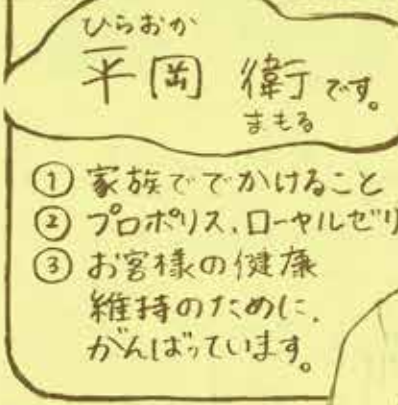 ひらおか
平岡 衛です。
まもる
① 家族ででかけること
② プロポリス、ローヤルゼリ
③ お客様の健康
維持のために、
がんばっています。